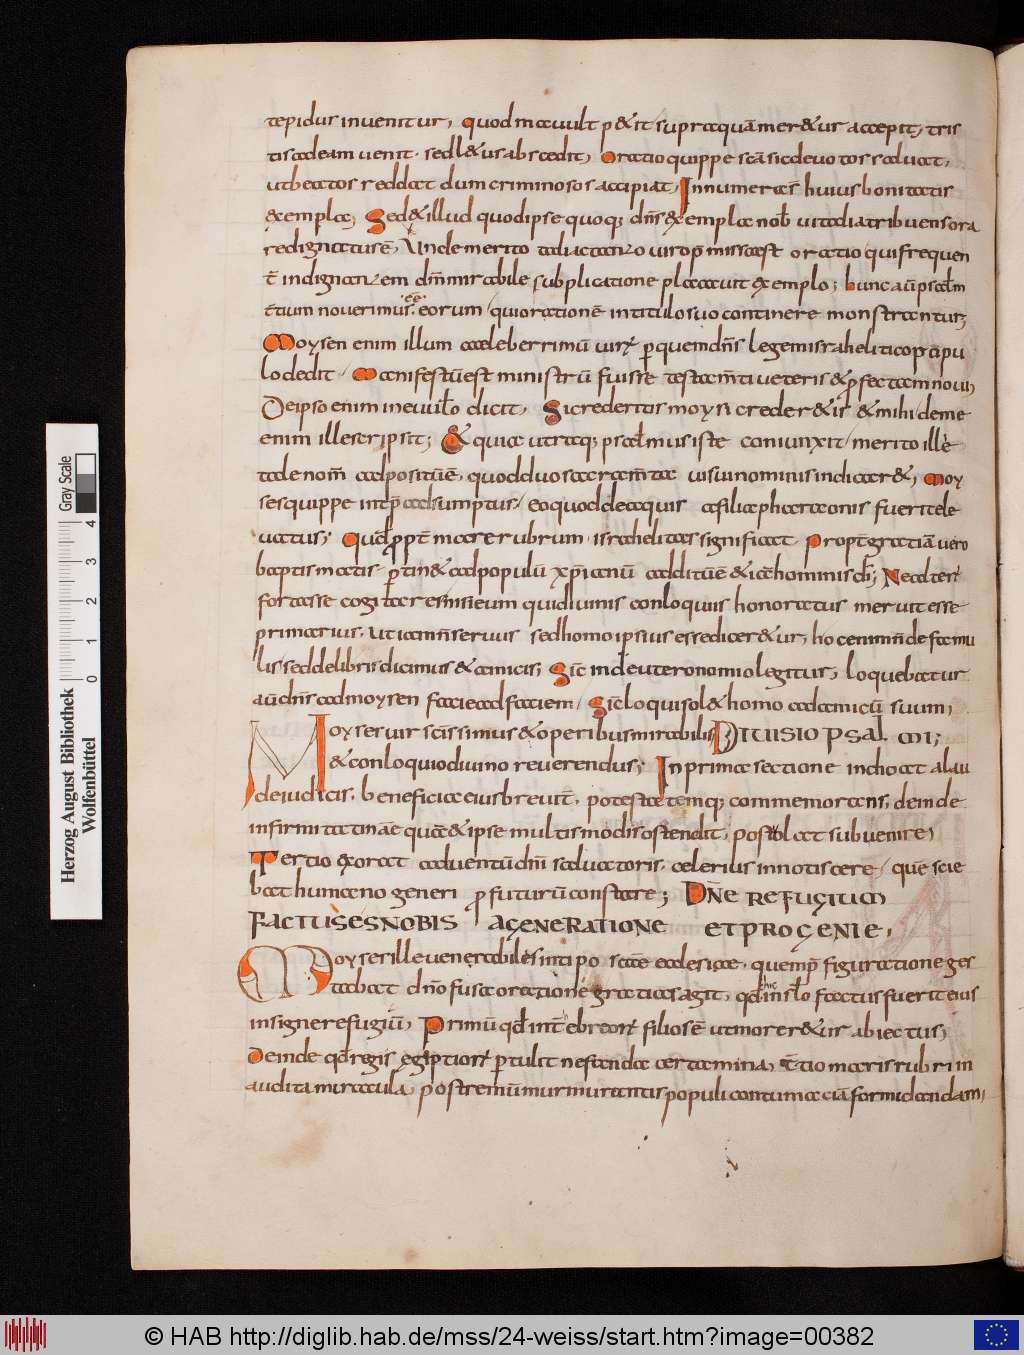 tepidus invenitur, quod mavult p&it supra quā mer&ur accepit, tris
tis adeam venit, sed l&us abscedit, Oratio quippe scā sic devotos salvat,
ut beatos reddat dum criminosos accipiat, Innumeraē huius bonitatis
exempla; Sed &illud quod ipse quoq; dn̄s exempla nob̄ vitæ diatribuens ora
re dignatus ē, Unde merito
oratio / qui frequen
t̄ indignantem dn̄m mirabile subplicatione placavit exemplo; hunc aū psal̄m
&ium noverimus eē eorum / qui orationē in titulo suo continere monstrantur;
Moysen enim illum cæleberrimū virū p quem dn̄s legem israhelitico p̄cipu
lo dedit / Manifestū est ministrū fuisse testam̄ti veteris & pfectam novi;
De ipso enim in evvl̄o dicit, Si crederitis moysi creder&is & mihi / de me
enim ille scripsit; & quia utraq; psalmus iste coniunxit / merito illē
tale nom̄ adpositū ē, quod duo sacram̄ta visui nominis indicar&, Moy
ses quippe int̄p̄ adsumptus / eo quod de aquis a filia pharaonis fuerit ele
vatus; Quod ppt̄ mare rubrum israhelitas significat Propt̄ gratiā vero
baptismatis ptin& ad populū xp̄ianū additū ē & icē hominis dī; Ne alter
fortasse cogitar& nisi eum qui divinis conloquiis honoratus meruit esse
primarius, ut iam n̄ servus sed homo ipsius esse dicer&ur, hoc enim n̄ de famu
lis / sed de liberis dicimus & amicis; Sic in deuteronomio legitur, loquebatur
aū dn̄s ad moysen facie ad faciem / Sic loqui sol& homo ad amicū suum,
Moyses vir sc̄issimus & operibus mirabilis DIVISIO PSALMI;
& conloquio divino reverendus; In prima sectione inchoat a lau
de iudicis, beneficia eius brevit̄, potestatemq; commemorans, deinde
infirmitatinæ quā & ipse multis modis ostendit, postolat subvenire,
Tertio exorat adventū dn̄i salvatoris, celerius innotiscere / quē scie
bat humano generi pfuturū constare; DN̄E REFUGIUM
FACTUS ES NOBIS A GENERATIONE ET PROGENIE,
Moyses ille venerabilis in tipo scāe æcclesiæ, quem p̄figuratione ges
tabat dn̄o fusa oratione gratias agit, qd̄ hic in sl̄o factus fuerit eius
insigne refugiū, Primū qd̄ int̄ ebreorū filios ē ut morer&ur abiectus,
Deinde qd̄ regis egiptiorū ptulit nefanda certamina, T̄tio maris rubri in
audita miracula, postremū murmurantis populi contumaciā formidandam,
Herzog August Bibliothek
Wolfenbüttel
Gray Scale
0 1 2 3 4
© HAB http://diglib.hab.de/mss/24-weiss/start.htm?image=00382